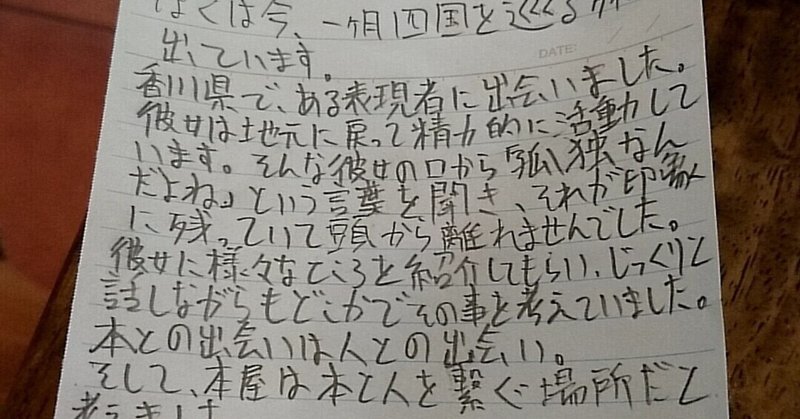 ぼくは今、一ヶ月四国をめぐる旅
DATE:
出ています。
香川県で、ある表現者に出会いました。
彼女は地元に戻って精力的に活動して
います。そんな彼女の口から「孤独なん
だよね」という言葉を聞き、それが印象
に残っていて頭から離れませんでした。
彼女に様々なところを紹介してもらい、じっくりと
話しながらもどこかでその事を考えていました。
本との出会いは人との出会い。
そして、本屋は本と人を繋ぐ場所だと
考えました